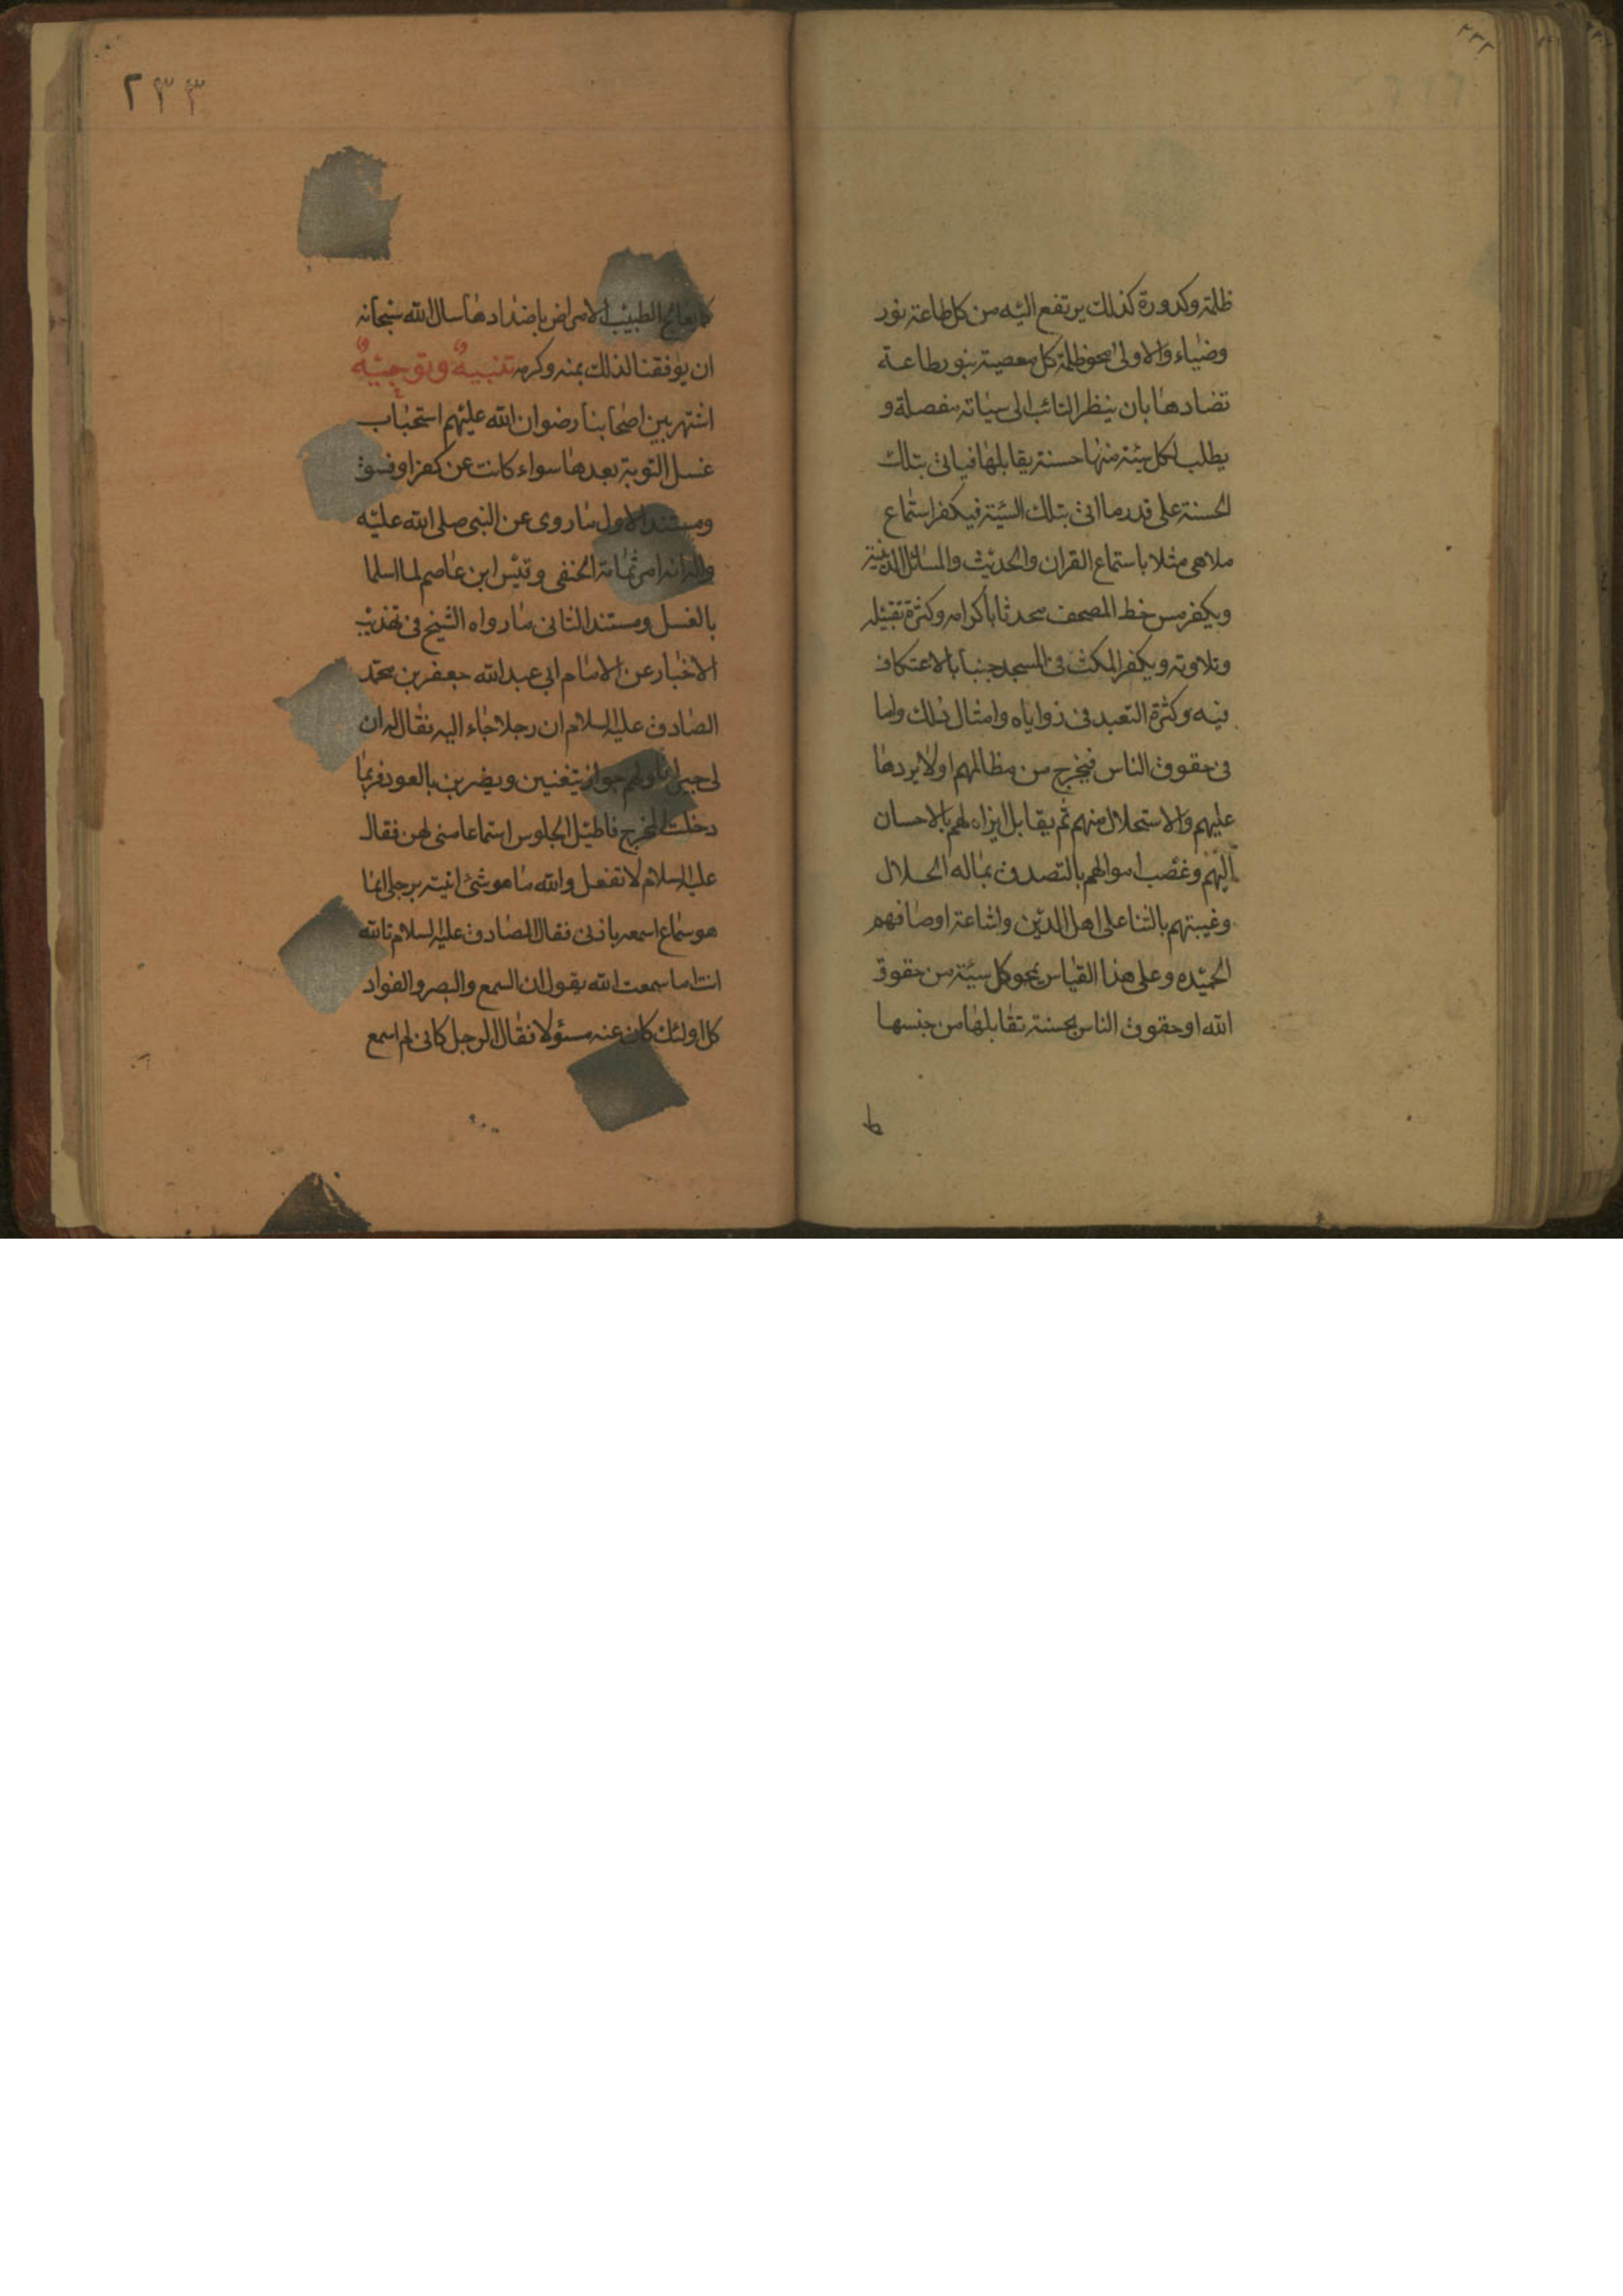 ٢٣٢
ظلمة وكدورة كذلك يرتفع اليه من كل طاعة نور
وضياء والاولى محو ظلمة كل معصية بنور طاعة
تضادها بان ينظر التائب الى سيئاته مفصلة و
يطلب لكل سيئة منها حسنة يقابلها فياتى بتلك
الحسنة على قدر ما اتى بتلك السيئة فيكفر استماع
ملاهى مثلا باستماع القران والحديث والمسائل الدينية
ويكفر مس خط المصحف محدثا باكرامه وكثرة تقبيله
وتلاوته ويكفر المكث فى المسجد جنبا بالاعتكاف
فيه وكثرة التعبد فى زواياه وامثال ذلك واما
فى حقوق الناس فيخرج من مظالمهم اولا يردها
عليهم والاستحلال منهم ثم يقابل ايذاه لهم بالاحسان
اليهم وغصب اموالهم بالتصدق بماله الحلال
وغيبتهم بالثنا على اهل الدين واشاعة اوصافهم
الحميده وعلى هذا القياس يمحو كل سيئة من حقوق
الله او حقوق الناس بحسنة تقابلها من جنسها
٢٣٣
كما يعالج الطبيب الامراض باضدادها سال الله سبحانه
ان يوفقنا لذلك بمنه وكرمه تنبيه وتوجيه
اشتهر بين اصحابنا رضوان الله عليهم استحباب
غسل التوبة بعدها سواء كانت عن كفر او فسق
ومستند الاول ما روى عن النبى صلى الله عليه
واله انه امر ثمامة الحنفى وقيس ابن عاصم لما اسلما
بالغسل ومستند الثانى ما رواه الشيخ فى تهذيب
الاخبار عن الامام ابى عبد الله جعفر بن محمد
الصادق عليه السلام ان رجلا جاء اليه فقال له ان
لى جيرانا ولهم جوار يتغنين ويضربن بالعود فربما
دخلت المخرج فاطيل الجلوس استماعا منى لهن فقال
عليه السلام لا تفعل والله ما هو شئ اتيته برجلى انما
هو سماع اسمعه باذنى فقال الصادق عليه السلام تالله
انت اما سمعت الله يقول ان السمع والبصر والفواد
كل اولئك كان عنه مسئولا فقال الرجل كانى لم اسمع